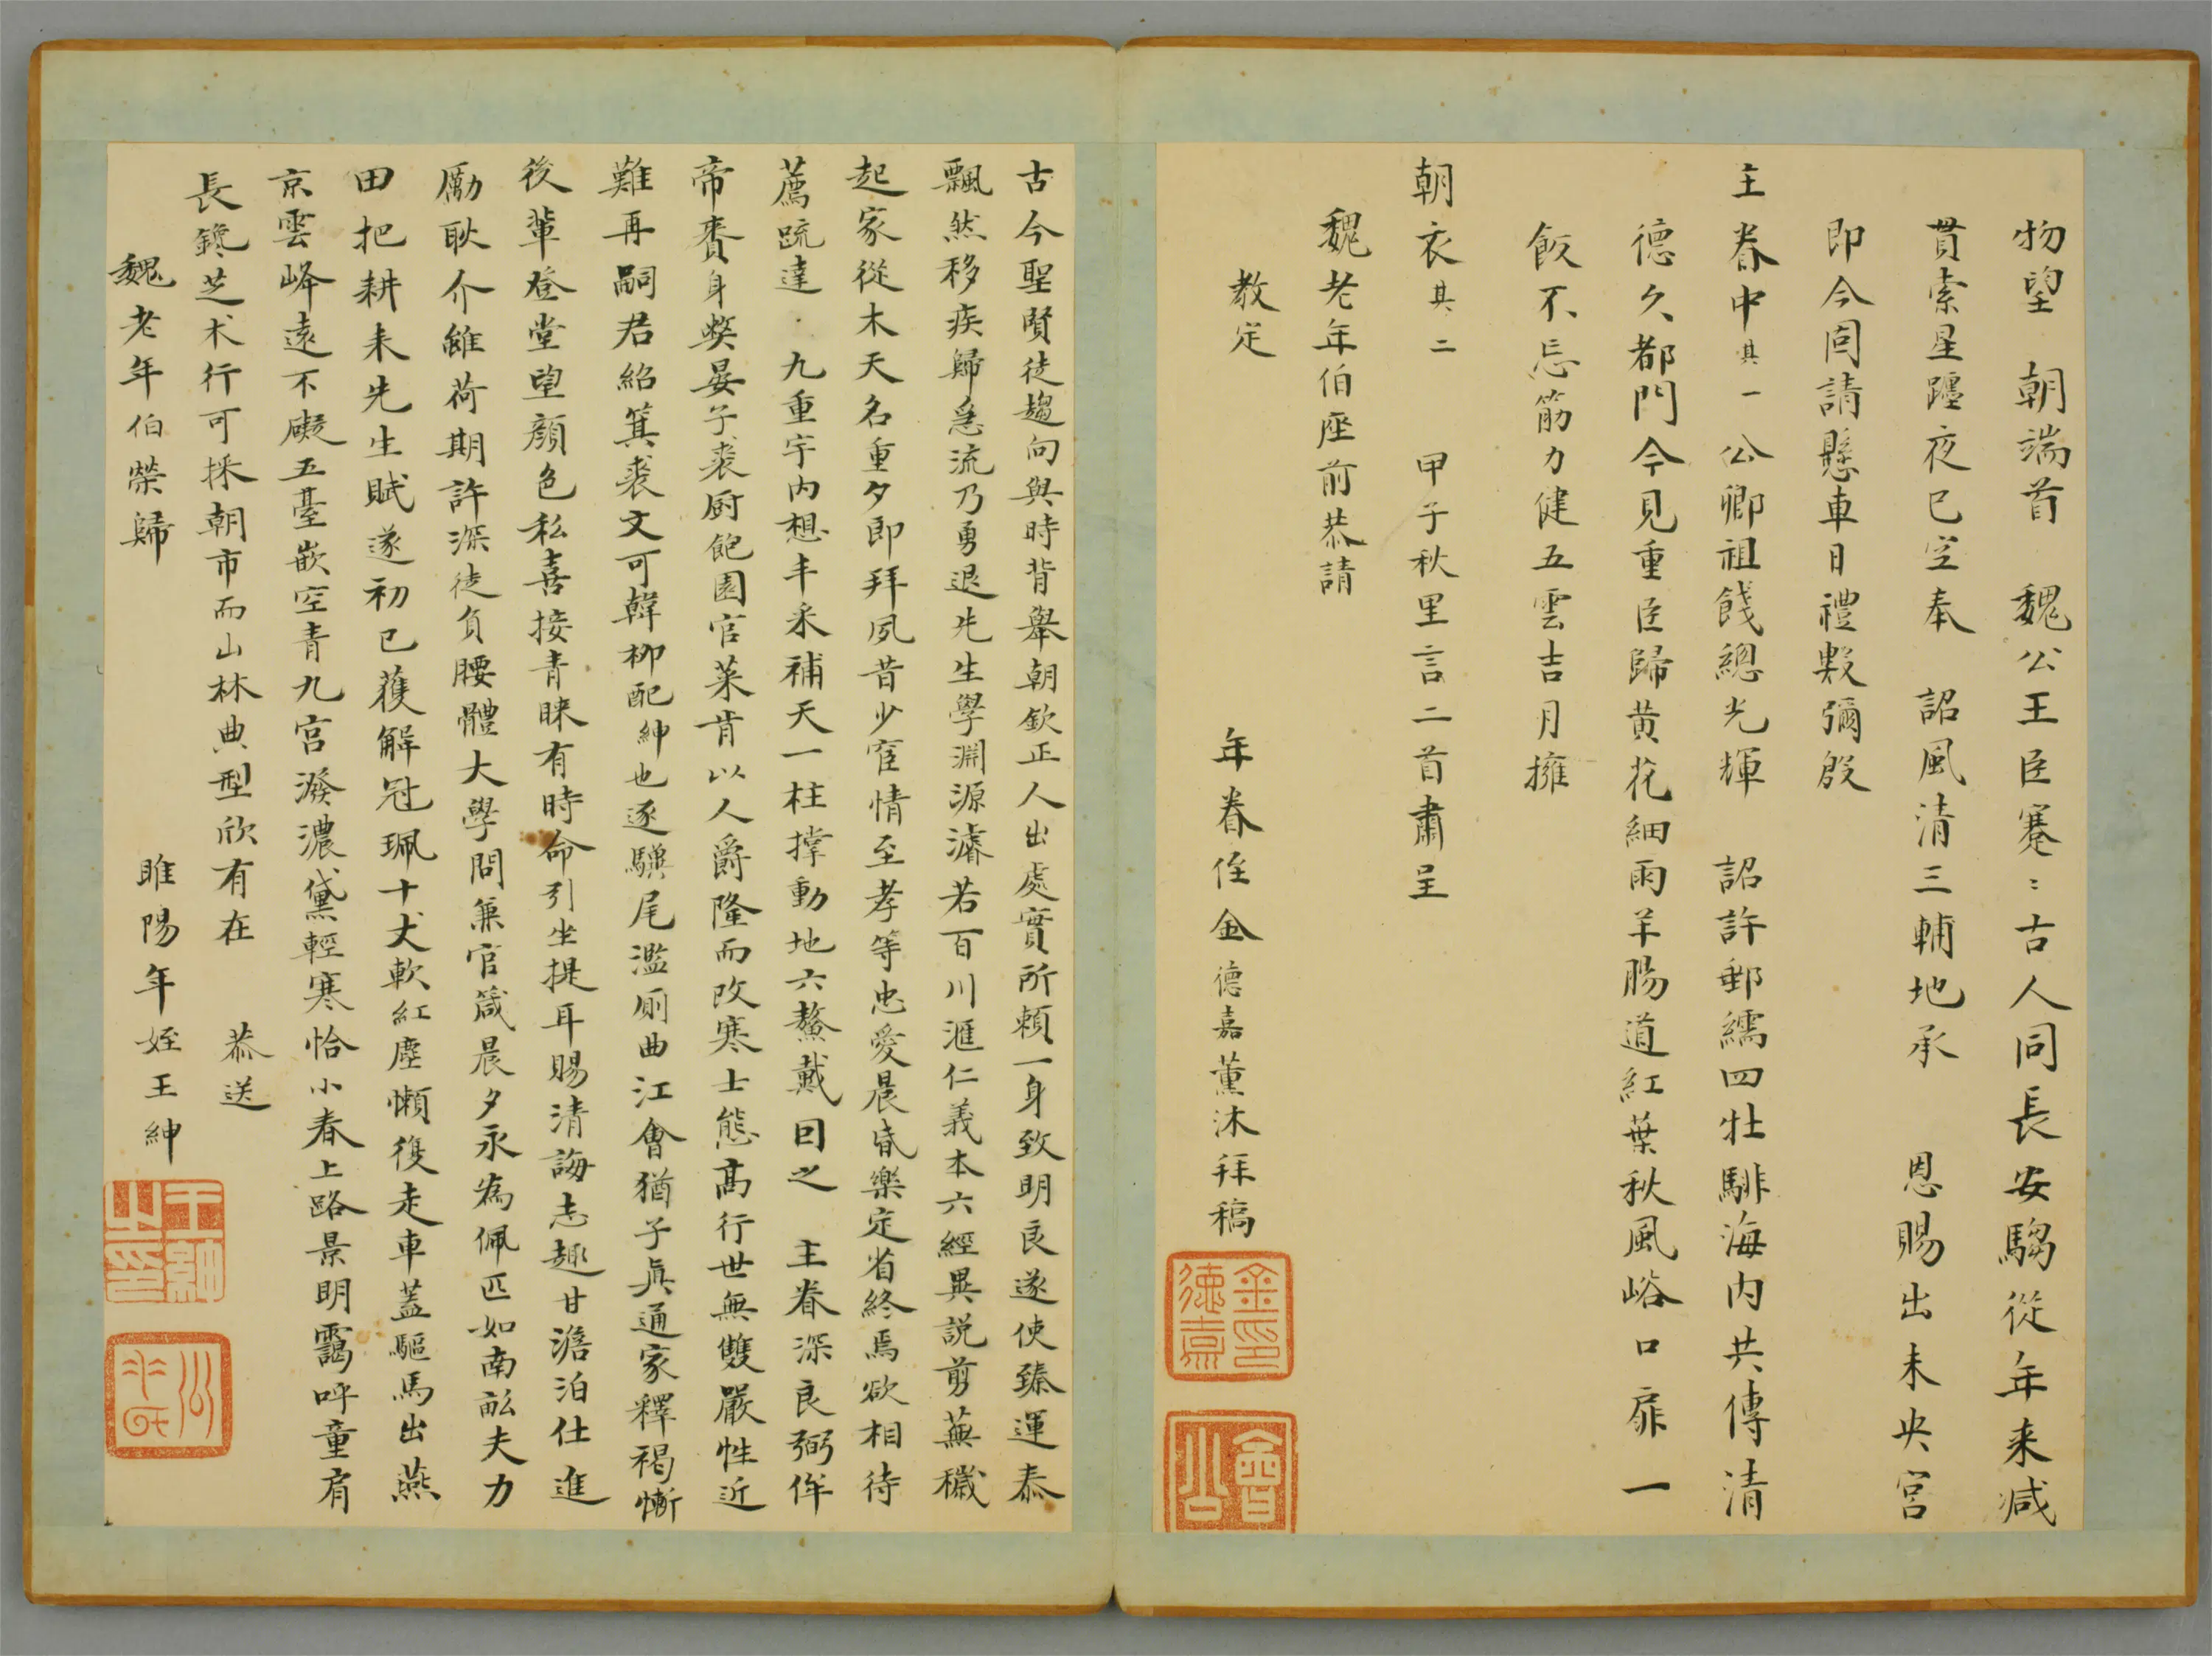 物望　朝端首　魏公王臣蹇〻古人同長安騶從年来减
貫索星躔夜已空奉　詔風清三輔地承　恩賜出未央宫
即今囬請懸車日禮數彌殷
主眷中其一　公卿祖餞總光輝　詔許郵繻四牡騑海内共傳清
德久都門今見重臣歸黄花細雨羊腸道紅葉秋風峪口扉一
飯不忘筋力健五雲吉月擁
朝衣其二　甲子秋里言二首肅呈
魏老年伯座前恭請
教定
年眷侄金德嘉薰沐拜稿
金德嘉印
會公
古今聖賢徒趨向與時背舉朝欽正人出處實所頼一身致明良遂使臻運泰
飄然移疾歸急流乃勇退先生學淵源濬若百川滙仁義本六經異説剪蕪穢
起家從木天名重夕郎拜夙昔少宦情至孝等忠愛晨昏樂定省終焉欲相待
薦䟽達　九重宇内想丰采補天一柱撑動地六鰲戴囙之　主眷深良弼侔
帝賚身獘晏子裘厨飽園官菜肯以人爵隆而改寒士態髙行世無雙嚴性近
難再嗣君紹箕裘文可韓柳配紳也逐驥尾濫厠曲江會猶子眞通家釋褐慚
後輩登堂望顔色私喜接青睐有時命引坐提耳賜清誨志趣甘澹泊仕進
勵耿介雖荷期許深徒負腰體大學問兼官箴晨夕永為佩匹如南畝夫力
田把耕耒先生賦遂初已獲解冠珮十丈軟紅塵懶復走車蓋驅馬出燕
京雲峰遠不礙五臺嵌空青九宫潑濃黛輕寒恰小春上路景明靄呼童肩
長鑱芝术行可採朝市而山林典型欣有在　恭送
魏老年伯榮歸
睢陽年姪王紳
王紳之印
公垂氏